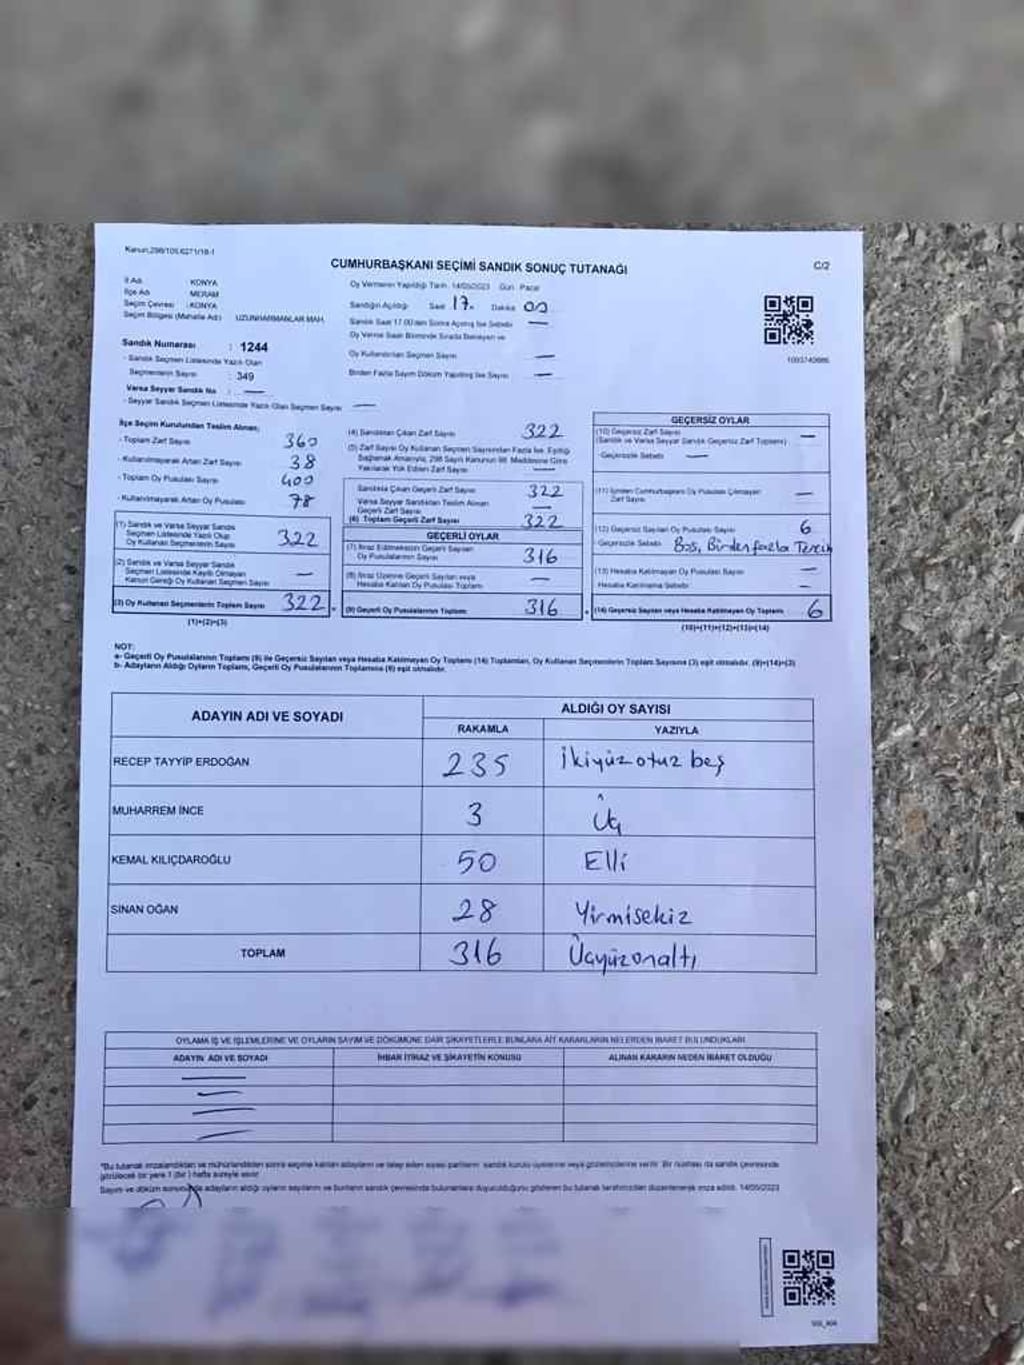 Kanun,298/105,6271/18-1
CUMHURBAŞKANI SEÇİMİ SANDIK SONUÇ TUTANAĞI
C/2
İl Adı : KONYA
İlçe Adı : MERAM
Seçim Çevresi : KONYA
Seçim Bölgesi (Mahalle Adı) : UZUNHARMANLAR MAH.
Sandık Numarası : 1244
- Sandık Seçmen Listesinde Yazılı Olan
Seçmenlerin Sayısı : 349
Varsa Seyyar Sandık No : —
- Seyyar Sandık Seçmen Listesinde Yazılı Olan Seçmen Sayısı —
Oy Vermenin Yapıldığı Tarih 14/05/2023 Gün Pazar
Sandığın Açıldığı Saat 17. Dakika 00
Sandık Saat 17.00'den Sonra Açılmış İse Sebebi —
Oy Verme Saati Bitiminde Sırada Bekleyen ve
Oy Kullandırılan Seçmen Sayısı —
Birden Fazla Sayım Döküm Yapılmış İse Sayısı —
1093740686
İlçe Seçim Kurulundan Teslim Alınan;
- Toplam Zarf Sayısı 360
- Kullanılmayarak Artan Zarf Sayısı 38
- Toplam Oy Pusulası Sayısı 400
- Kullanılmayarak Artan Oy Pusulası 78
(1) Sandık ve Varsa Seyyar Sandık
Seçmen Listesinde Yazılı Olup
Oy Kullanan Seçmenlerin Sayısı 322
(2) Sandık ve Varsa Seyyar Sandık
Seçmen Listesinde Kayıtlı Olmayan
Kanun Gereği Oy Kullanan Seçmen Sayısı —
(3) Oy Kullanan Seçmenlerin Toplam Sayısı 322
(1)+(2)=(3)
(4) Sandıktan Çıkan Zarf Sayısı 322
(5) Zarf Sayısı Oy Kullanan Seçmen Sayısından Fazla İse, Eşitliği
Sağlamak Amacıyla, 298 Sayılı Kanunun 98. Maddesine Göre
Yakılarak Yok Edilen Zarf Sayısı —
Sandıkta Çıkan Geçerli Zarf Sayısı 322
Varsa Seyyar Sandıktan Teslim Alınan
Geçerli Zarf Sayısı —
(6) Toplam Geçerli Zarf Sayısı 322
GEÇERLİ OYLAR
(7) İtiraz Edilmeksizin Geçerli Sayılan
Oy Pusulalarının Sayısı 316
(8) İtiraz Üzerine Geçerli Sayılan veya
Hesaba Katılan Oy Pusulası Toplamı —
(9) Geçerli Oy Pusulalarının Toplamı 316
GEÇERSİZ OYLAR
(10) Geçersiz Zarf Sayısı —
(Sandık ve Varsa Seyyar Sandık Geçersiz Zarf Toplamı)
- Geçersizlik Sebebi —
(11) İçinden Cumhurbaşkanı Oy Pusulası Çıkmayan
Zarf Sayısı —
(12) Geçersiz Sayılan Oy Pusulası Sayısı 6
- Geçersizlik Sebebi Boş, Birden fazla Tercih
(13) Hesaba Katılmayan Oy Pusulası Sayısı —
Hesaba Katılmama Sebebi —
(14) Geçersiz Sayılan veya Hesaba Katılmayan Oy Toplamı 6
(10)+(11)+(12)+(13)=(14)
NOT:
a- Geçerli Oy Pusulalarının Toplamı (9) ile Geçersiz Sayılan veya Hesaba Katılmayan Oy Toplamı (14) Toplamları, Oy Kullanan Seçmenlerin Toplam Sayısına (3) eşit olmalıdır. (9)+(14)=(3)
b- Adayların Aldığı Oyların Toplamı, Geçerli Oy Pusulalarının Toplamına (9) eşit olmalıdır.
ADAYIN ADI VE SOYADI
ALDIĞI OY SAYISI
RAKAMLA YAZIYLA
RECEP TAYYİP ERDOĞAN 235 İkiyüzotuz beş
MUHARREM İNCE 3 Üç
KEMAL KILIÇDAROĞLU 50 Elli
SİNAN OĞAN 28 Yirmisekiz
TOPLAM 316 Üçyüzonaltı
OYLAMA İŞ VE İŞLEMLERİNE VE OYLARIN SAYIM VE DÖKÜMÜNE DAİR ŞİKAYETLERLE BUNLARA AİT KARARLARIN NELERDEN İBARET BULUNDUKLARI
ADAYIN ADI VE SOYADI İHBAR İTİRAZ VE ŞİKAYETİN KONUSU ALINAN KARARIN NEDEN İBARET OLDUĞU
*Bu tutanak imzalandıktan ve mühürlendikten sonra seçime katılan adayların ve talep eden siyasi partilerin sandık kurulu üyelerine veya gözlemcilerine verilir. Bir nüshası da sandık çevresinde
görülecek bir yere 1 (bir) hafta süreyle asılır.
Sayım ve döküm sonucunda adayların aldığı oyların sayılarını ve bunların sandık çevresinde bulunanlara duyurulduğunu gösteren bu tutanak tarafımızdan düzenlenerek imza edildi. 14/05/2023